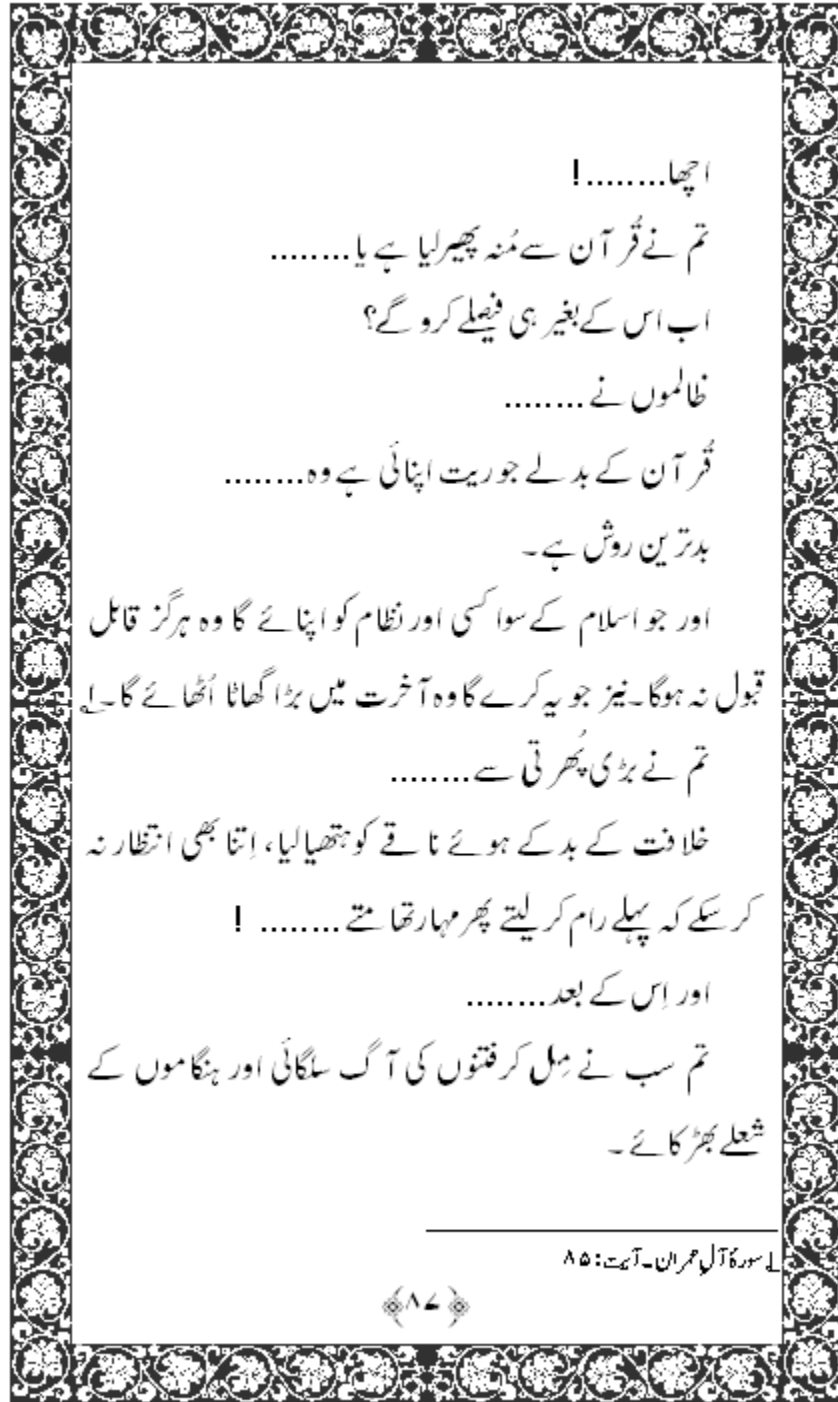 اچھا.........!
تم نے قُرآن سے مُنہ پھیر لیا ہے یا.........
اب اس کے بغیر ہی فیصلے کرو گے؟
ظالموں نے.........
قُرآن کے بدلے جو ریت اپنائی ہے وہ.........
بدترین روش ہے۔
اور جو اسلام کے سوا کسی اور نظام کو اپنائے گا وہ ہرگز قابل
قبول نہ ہوگا۔ نیز جو یہ کرے گا وہ آخرت میں بڑا گھاٹا اُٹھائے گا۔ ؎۱
تم نے بڑی پُھرتی سے.........
خلافت کے بدکے ہوئے ناقے کو ہتھیا لیا، اِتنا بھی انتظار نہ
کر سکے کہ پہلے رام کر لیتے پھر مہار تھامتے......... !
اور اِس کے بعد.........
تم سب نے مِل کر فتنوں کی آگ سلگائی اور ہنگاموں کے
شعلے بھڑکائے۔
؎۱ سورۂ آلِ عمران۔ آیت: ۸۵
۸۷